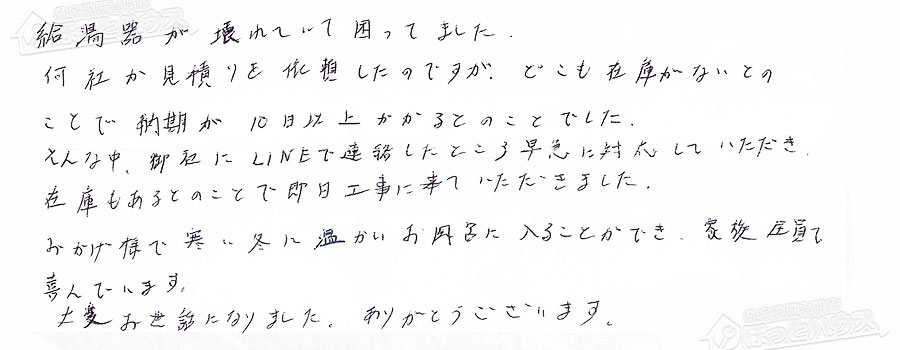 給湯器が壊れていて困ってました.
何社か見積りを依頼したのですが、どこも在庫がないとの
ことで納期が10日以上かかるとのことでした.
そんな中、御社にLINEで連絡したところ早急に対応していただき、
在庫もあるとのことで即日工事に来ていただきました.
おかげ様で寒い冬に温かいお風呂に入ることができ、家族全員で
喜んでいます。
大変お世話になりました。ありがとうございます。